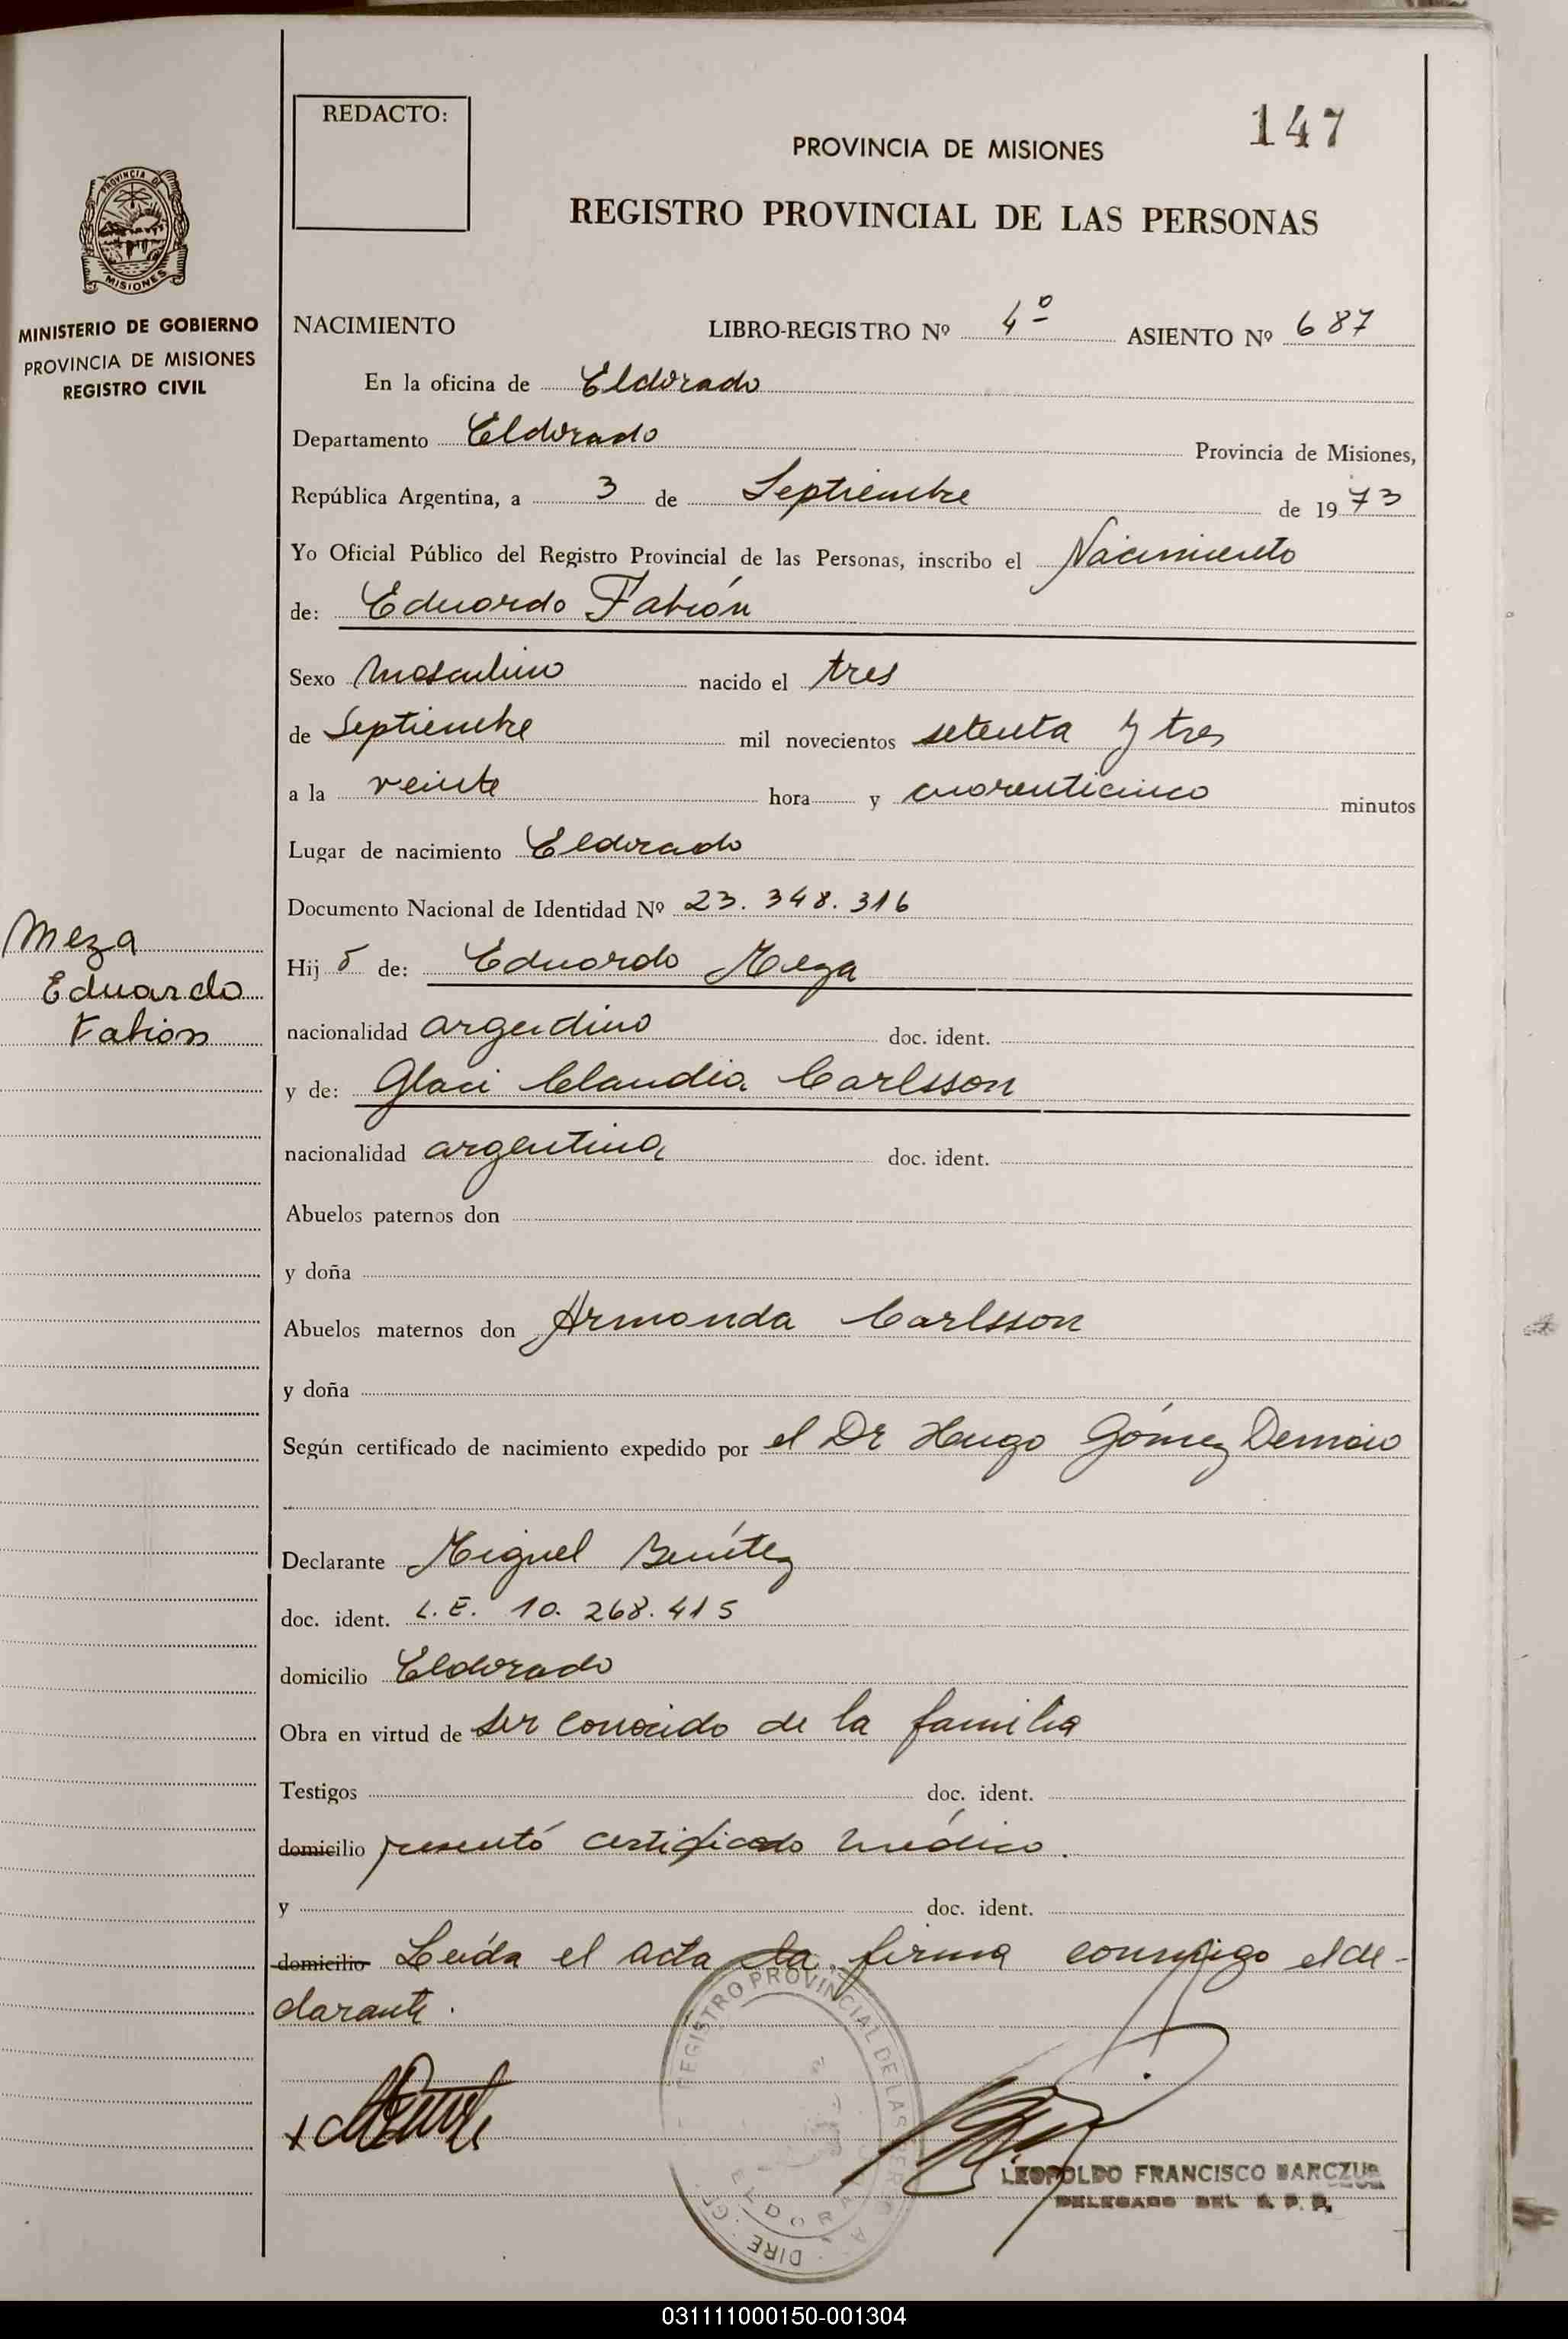 REDACTO:
147
PROVINCIA DE MISIONES
REGISTRO PROVINCIAL DE LAS PERSONAS
PROVINCIA DE
MISIONES
MINISTERIO DE GOBIERNO
PROVINCIA DE MISIONES
REGISTRO CIVIL
NACIMIENTO LIBRO-REGISTRO Nº 4º ASIENTO Nº 687
En la oficina de Eldorado
Departamento Eldorado Provincia de Misiones,
República Argentina, a 3 de Septiembre de 1973
Yo Oficial Público del Registro Provincial de las Personas, inscribo el Nacimiento
de: Eduardo Fabián
Sexo Masculino nacido el tres
de Septiembre mil novecientos setenta y tres
a la veinte hora y cuarenticinco minutos
Lugar de nacimiento Eldorado
Documento Nacional de Identidad Nº 23.348.316
Meza
Eduardo
Fabian
Hijo de: Eduardo Meza
nacionalidad argentino doc. ident.
y de: Glaci Claudia Carlsson
nacionalidad argentina doc. ident.
Abuelos paternos don
y doña
Abuelos maternos don Armanda Carlsson
y doña
Según certificado de nacimiento expedido por el Dr Hugo Gómez Demaio
Declarante Miguel Benítez
doc. ident. L.E. 10.268.415
domicilio Eldorado
Obra en virtud de ser conocido de la familia
Testigos doc. ident.
domicilio presentó certificado médico.
y doc. ident.
domicilio Leída el acta la firma conmigo el de-
clarante.
REGISTRO PROVINCIAL DE LAS
LEOPOLDO FRANCISCO
DELEGADO DEL R. P. P.
031111000150-001304